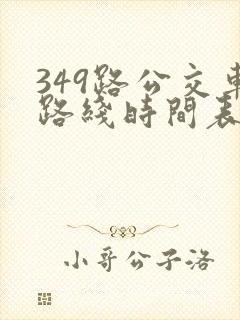 349路公交車
路綫時間表
小哥公子洛